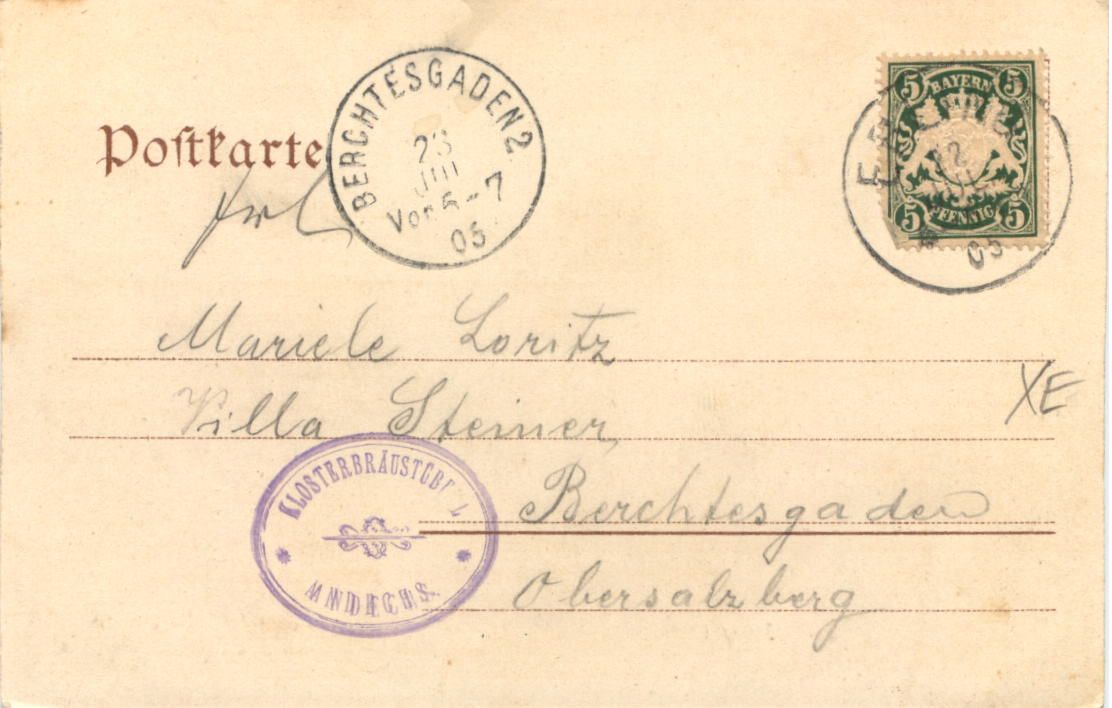 Postkarte
BERCHTESGADEN 2
23
JUL
Vor 6-7
05
5 BAYERN 5
5 PFENNIG 5
05
Mariele Loritz
Villa Steiner
Berchtesgaden
Obersalzberg
XE
KLOSTERBRÄUSTÜBERL
ANDECHS.